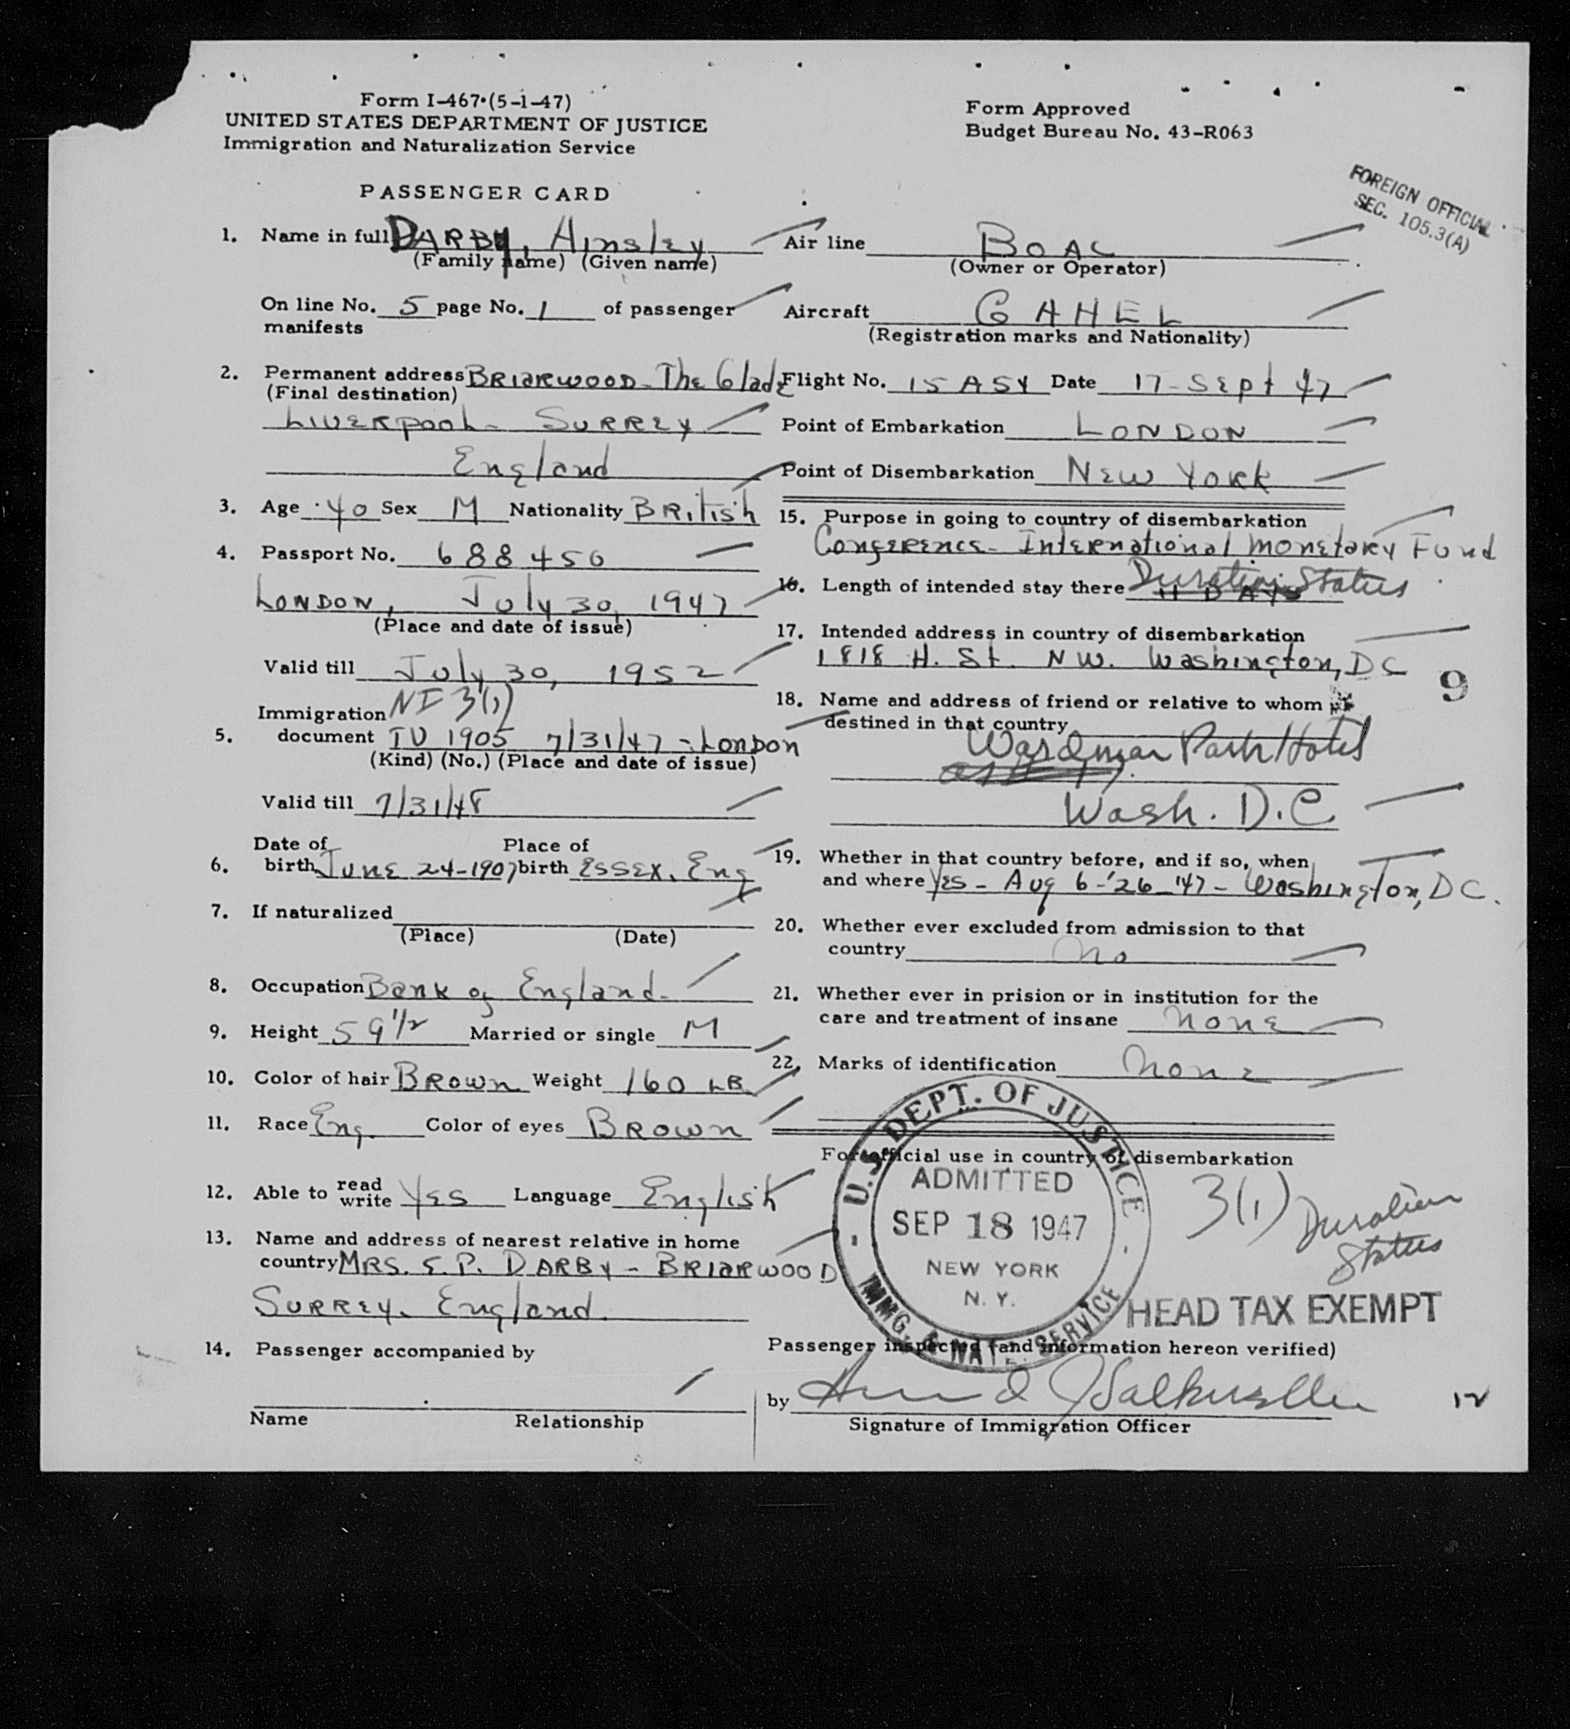 Form I-467 (5-1-47)
UNITED STATES DEPARTMENT OF JUSTICE
Immigration and Naturalization Service
PASSENGER CARD
Form Approved
Budget Bureau No. 43-R063
FOREIGN OFFICIAL
SEC. 105.3(A)
1. Name in full DARBY, Ainsley
(Family name) (Given name)
On line No. 5 page No. 1 of passenger
manifests
2. Permanent address BRIARWOOD - The Glade
(Final destination)
LIVERPOOL - SURREY
England
3. Age 40 Sex M Nationality BRitish
4. Passport No. 688450
LONDON, July 30, 1947
(Place and date of issue)
Valid till July 30, 1952
NI 3(1)
Immigration
5. document TV 1905 7/31/47 - London
(Kind) (No.) (Place and date of issue)
Valid till 7/31/48
Date of Place of
6. birth June 24-1907 birth ESSEX, Eng
7. If naturalized
(Place) (Date)
8. Occupation Bank of England
9. Height 5 9 1/2 Married or single M
10. Color of hair BROWN Weight 160 LB
11. Race Eng. Color of eyes BROWN
12. Able to read write Yes Language English
13. Name and address of nearest relative in home
country MRS. E.P. DARBY - BRIARWOOD
SURREY, England.
14. Passenger accompanied by
Name Relationship
Air line BOAC
(Owner or Operator)
Aircraft G AHEL
(Registration marks and Nationality)
Flight No. 15 ASY Date 17 - Sept 47
Point of Embarkation LONDON
Point of Disembarkation New York
15. Purpose in going to country of disembarkation
Conference - International Monetary Fund
16. Length of intended stay there Duration Status
17. Intended address in country of disembarkation
1818 H. St. NW. Washington, DC
9
18. Name and address of friend or relative to whom
destined in that country
Wardman Park Hotel
Wash. D.C.
19. Whether in that country before, and if so, when
and where Yes - Aug 6-'26-'47 - Washington, DC.
20. Whether ever excluded from admission to that
country No
21. Whether ever in prision or in institution for the
care and treatment of insane None
22. Marks of identification None
For official use in country of disembarkation
U.S. DEPT. OF JUSTICE
ADMITTED
SEP 18 1947
NEW YORK
N. Y.
IMMG. & NAT. SERVICE
3(1) Duration
Status
HEAD TAX EXEMPT
Passenger inspected (and information hereon verified)
by
Signature of Immigration Officer
12